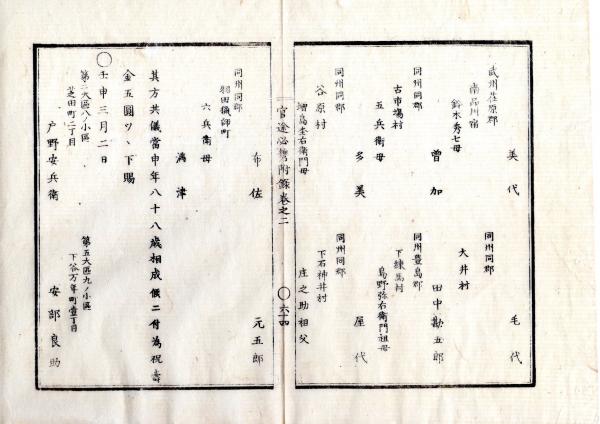 武州荏原郡
南品川宿
鈴木秀七母
美代
毛代
同州同郡
大井村
田中勘五郎
曽加
同州同郡
古市場村
五兵衛母
多美
同州豊島郡
下練馬村
島野弥右衛門祖母
屋代
同州同郡
谷原村
増島杢右衛門母
同州同郡
下石神井村
庄之助祖父
官途必携附録巻之二
〇六十四
元五郎
布佐
同州同郡
羽田猟師町
六兵衛母
満津
其方共儀当申年八十八歳相成候ニ付為祝寿
金五圓ツヽ下賜
〇壬申三月二日
第二大區八ノ小區
芝田町二丁目
戸野安兵衛
第五大區九ノ小區
下谷万年町壹丁目
安部良助